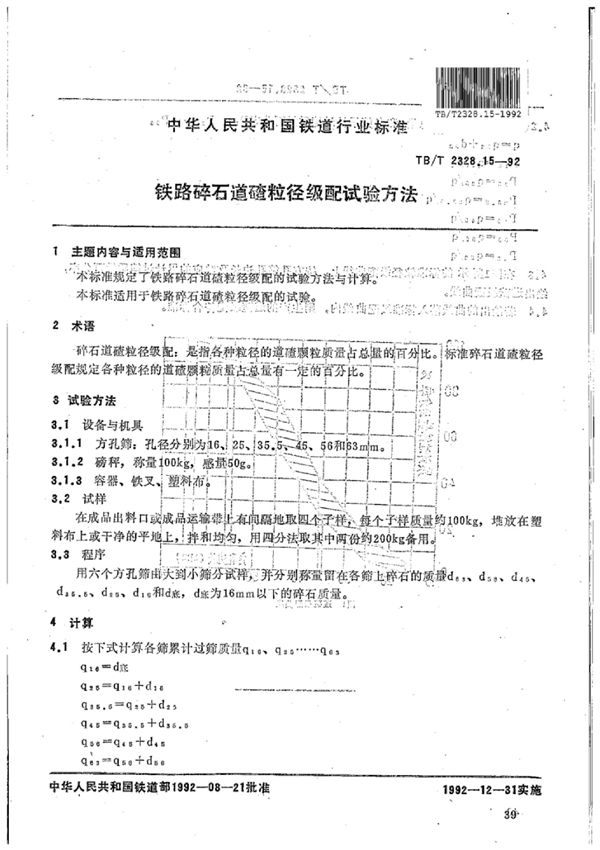 TB/T2328.15-1992
中华人民共和国铁道行业标准
TB/T 2328.15—92
铁路碎石道碴粒径级配试验方法
1 主题内容与适用范围
本标准规定了铁路碎石道碴粒径级配的试验方法与计算。
本标准适用于铁路碎石道碴粒径级配的试验。
2 术语
碎石道碴粒径级配：是指各种粒径的道碴颗粒质量占总量的百分比。标准碎石道碴粒径
级配规定各种粒径的道碴颗粒质量占总量有一定的百分比。
3 试验方法
3.1 设备与机具
3.1.1 方孔筛：孔径分别为16、25、35.5、45、56和63mm。
3.1.2 磅秤，称量100kg，感量50g。
3.1.3 容器、铁叉、塑料布。
3.2 试样
在成品出料口或成品运输带上有间隔地取四个子样，每个子样质量约100kg，堆放在塑
料布上或干净的平地上，拌和均匀，用四分法取其中两份约200kg备用。
3.3 程序
用六个方孔筛由大到小筛分试样，并分别称量留在各筛上碎石的质量d₆₃、d₅₆、d₄₅、
d₃₅.₅、d₂₅、d₁₆和d底，d底为16mm以下的碎石质量。
4 计算
4.1 按下式计算各筛累计过筛质量q₁₆、q₂₅……q₆₃
q₁₆=d底
q₂₅=q₁₆+d₁₆
q₃₅.₅=q₂₅+d₂₅
q₄₅=q₃₅.₅+d₃₅.₅
q₅₆=q₄₅+d₄₅
q₆₃=q₅₆+d₅₆
中华人民共和国铁道部1992—08—21批准
1992—12—31实施
39